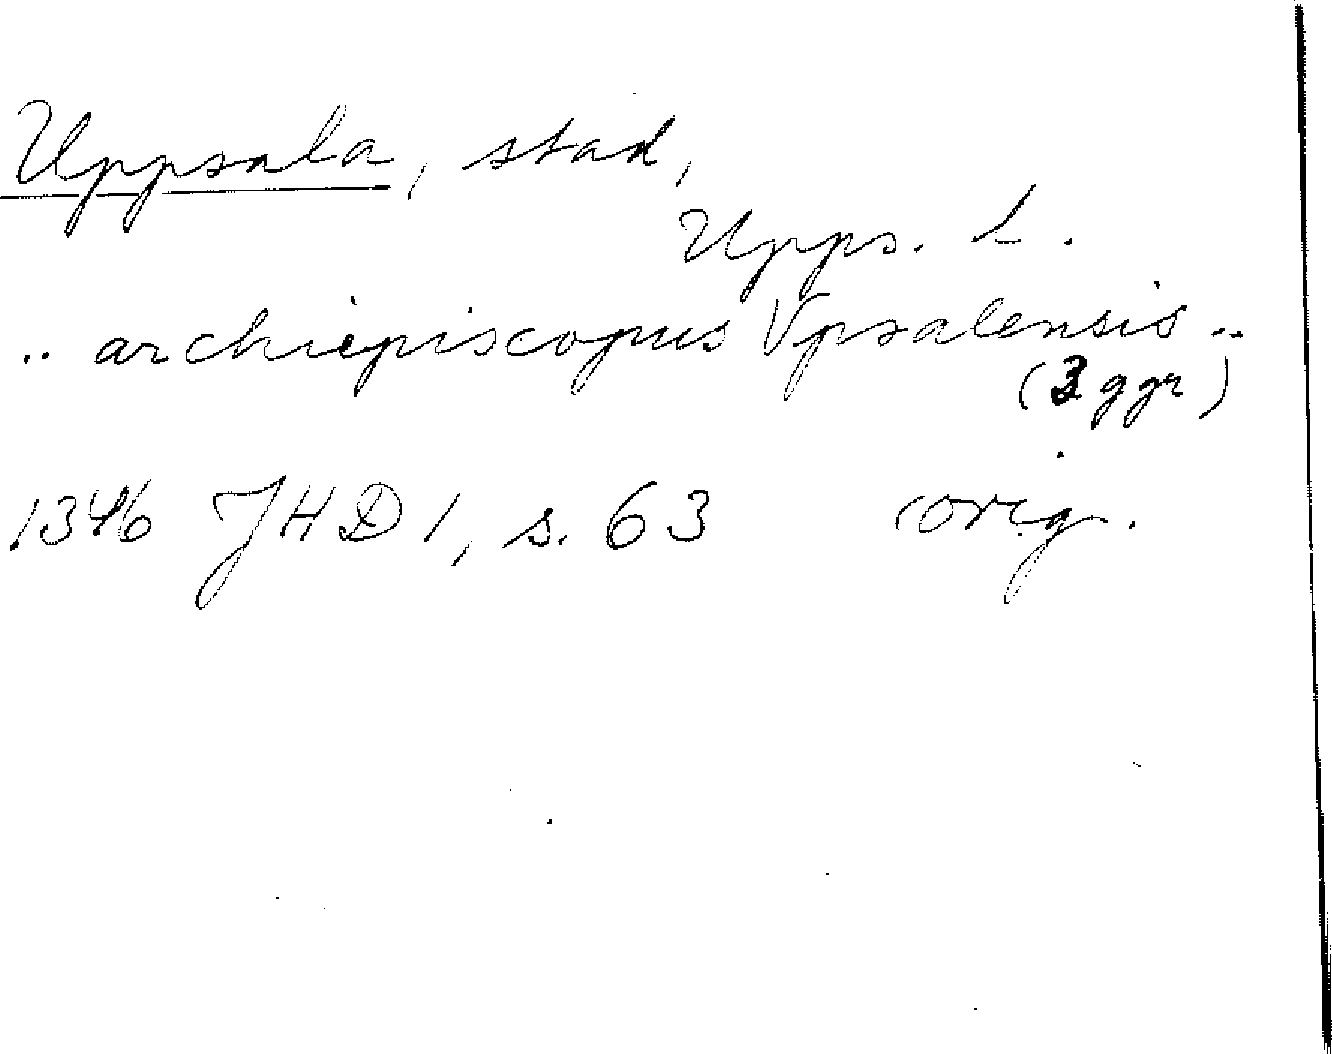 Uppsala, stad,
Upps. L.
.. archiepiscopus Vpsalensis ..
(3 ggr)
1346 JHD 1, s. 63 orig.